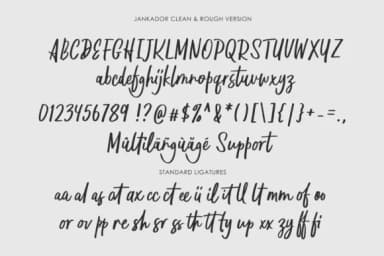 JANKADOR CLEAN & ROUGH VERSION
ABCDEFGHIJKLMNOPQRSTUVWXYZ
abcdefghijklmnopqrstuvwxyz
0123456789 !?@#$%^&*()[\]{|}+-=.,
Múltilãñgùägé Support
STANDARD LIGATURES
aa al as at ax cc ct ee ii il it ll lt mm of oo
or ov pp re sh sr ss th tt ty up xx zy ff fi